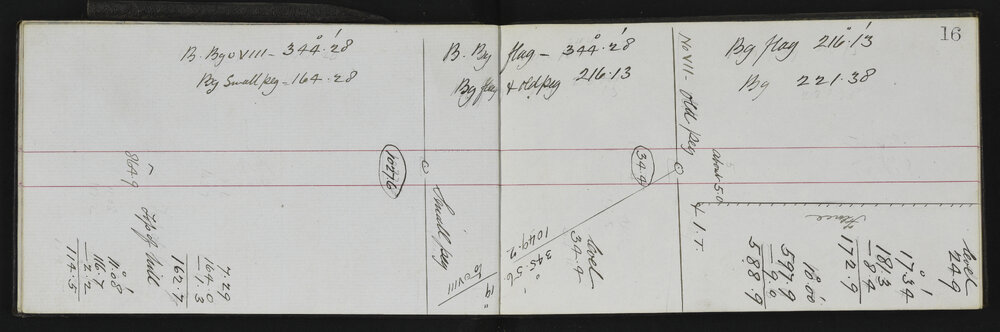 16
B. Bg o VIII - 344°.28'
Bg Small peg - 164.28
864.9
Top of hill
11.08
116.7
-2.2
114.5
729
164.0
-1.3
162.7
10276
Small peg
to O VIII
B. Bg flag - 344°.28'
Bg flag & old peg 216.13
34.4
1049.2
345.56
level
34.4
No VII - old peg
Bg flag 216°.13'
Bg 221.38
about 50
fence
& I.T.
level
249
17°.34'
181.3
-8.4
172.9
10°.00'
597.9
-9.0
588.9